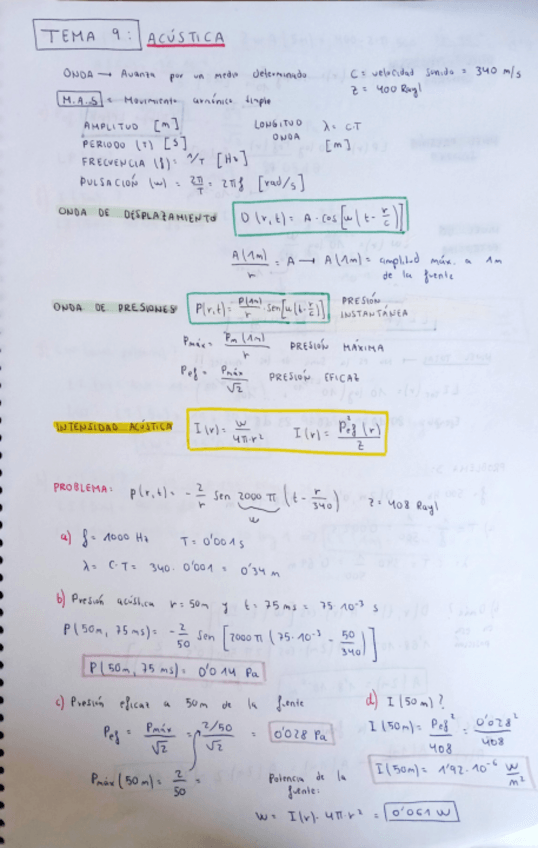 TEMA 9: ACÚSTICA
ONDA → Avanza por un medio determinado C = velocidad sonido = 340 m/s
Z = 400 Rayl
M.A.S = Movimiento armónico simple
AMPLITUD [m] LONGITUD ONDA λ = C·T [m]
PERIODO (T) [s]
FRECUENCIA (f) = 1/T [Hz]
PULSACIÓN (w) = 2π/T = 2πf [rad/s]
ONDA DE DESPLAZAMIENTO D(r,t) = A · cos[w(t - r/c)]
A(1m)/r = A → A(1m) = amplitud máx. a 1m de la fuente
ONDA DE PRESIONES P(r,t) = P(1m)/r · sen[w(t - r/c)] PRESIÓN INSTANTÁNEA
Pmáx = Pm(1m)/r PRESIÓN MÁXIMA
Pef = Pmáx/√2 PRESIÓN EFICAZ
INTENSIDAD ACÚSTICA I(r) = W/4π·r² I(r) = P²ef(r)/Z
PROBLEMA: p(r,t) = - 2/r sen 2000π (t - r/340) Z = 408 Rayl
w
a) f = 1000 Hz T = 0'001 s
λ = C·T = 340 · 0'001 = 0'34 m
b) Presión acústica r = 50m y t = 75 ms = 75·10⁻³ s
P(50m, 75ms) = - 2/50 sen [2000π (75·10⁻³ - 50/340)]
P(50m, 75ms) = 0'014 Pa
c) Presión eficaz a 50m de la fuente
Pef = Pmáx/√2 = 2/50/√2 = 0'028 Pa
Pmáx(50m) = 2/50 =
d) I(50m)?
I(50m) = Pef²/408 = 0'028²/408
I(50m) = 1'92·10⁻⁶ W/m²
Potencia de la fuente:
W = I(r)·4π·r² = 0'061 W